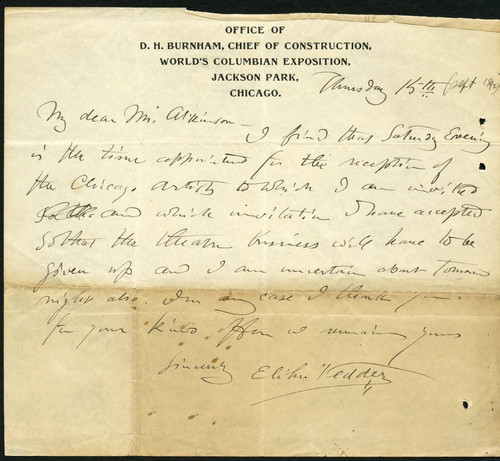 OFFICE OF
D. H. BURNHAM, CHIEF OF CONSTRUCTION,
WORLD'S COLUMBIAN EXPOSITION,
JACKSON PARK,
CHICAGO.
Thursday 15th Sept
My dear Mr. Atkinson —
I find that Saturday Evening
is the time appointed for the reception of
the Chicago Artists to which I am invited
and which invitation I have accepted
so that the theatre business will have to be
given up and I am uncertain about tomorrow
night also. In any case I thank you
for your kind offer &amp; remain yours
Sincerely Elihu Vedder